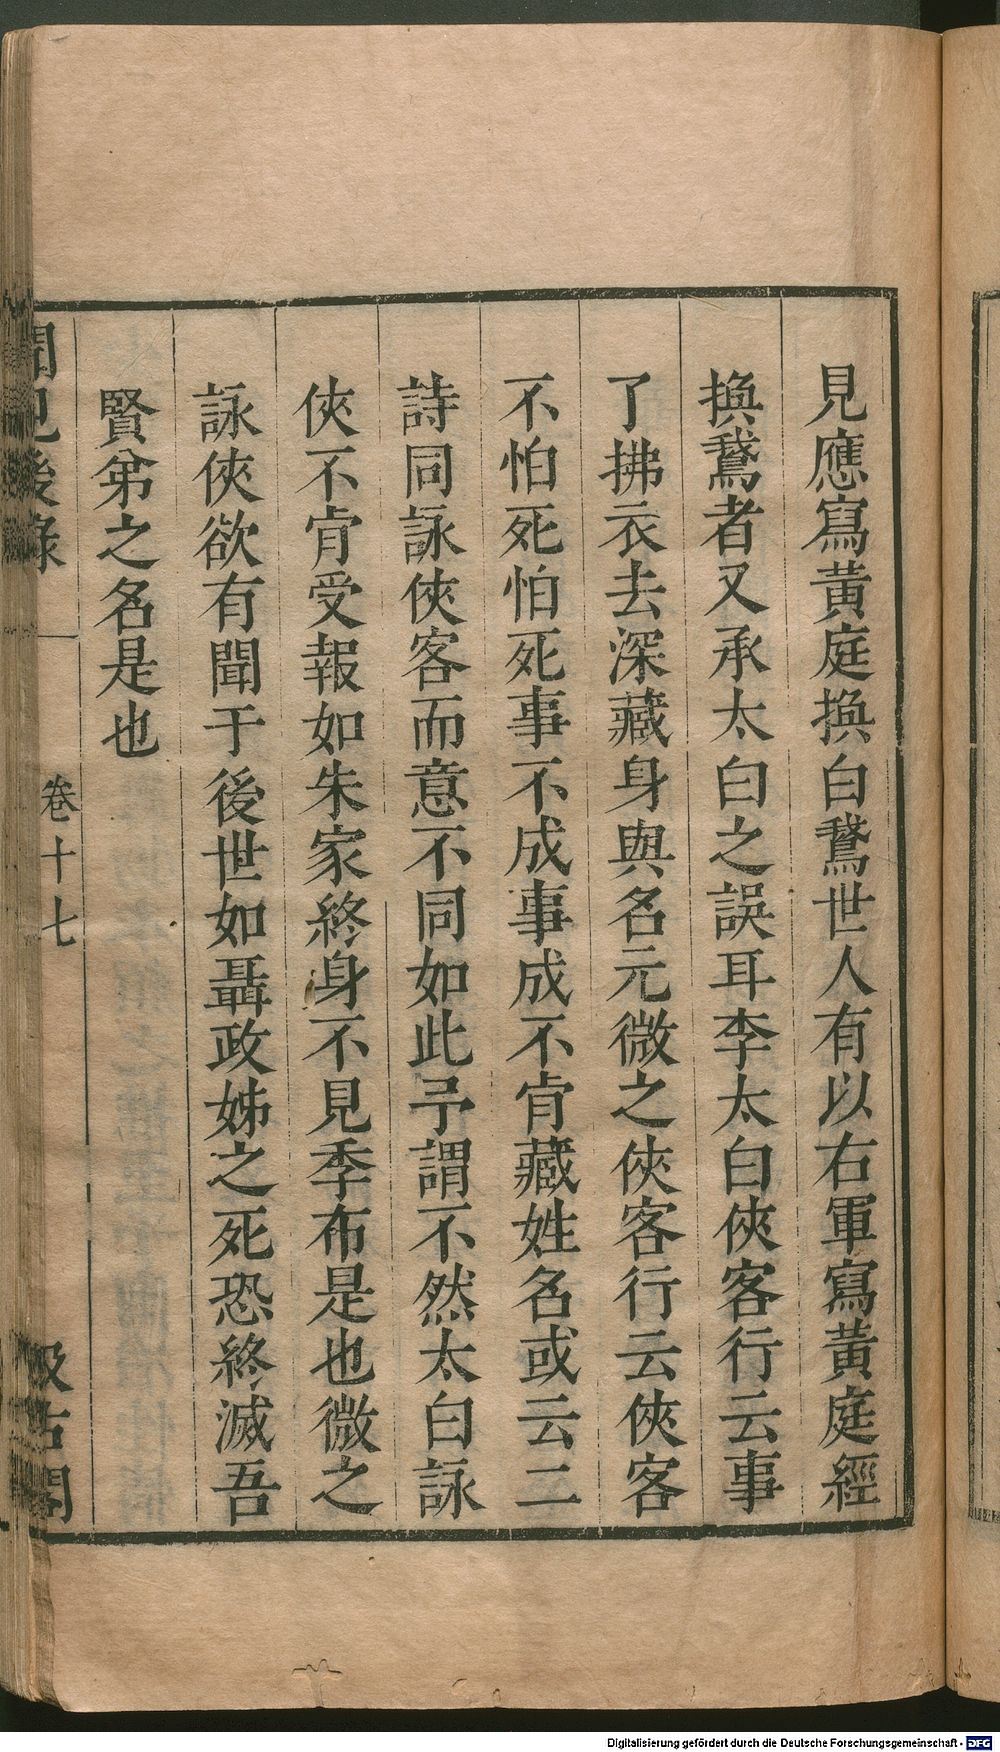 見應寫黃庭換白鵞世人有以右軍寫黃庭經
換鵞者又承太白之誤耳李太白俠客行云事
了拂衣去深藏身與名元微之俠客行云俠客
不怕死怕死事不成事成不肯藏姓名或云二
詩同詠俠客而意不同如此予謂不然太白詠
俠不肯受報如朱家終身不見季布是也微之
詠俠欲有聞于後世如聶政姊之死恐終滅吾
賢弟之名是也
聞見後錄
卷十七
汲古閣
Digitalisierung gefördert durch die Deutsche Forschungsgemeinschaft - DFG